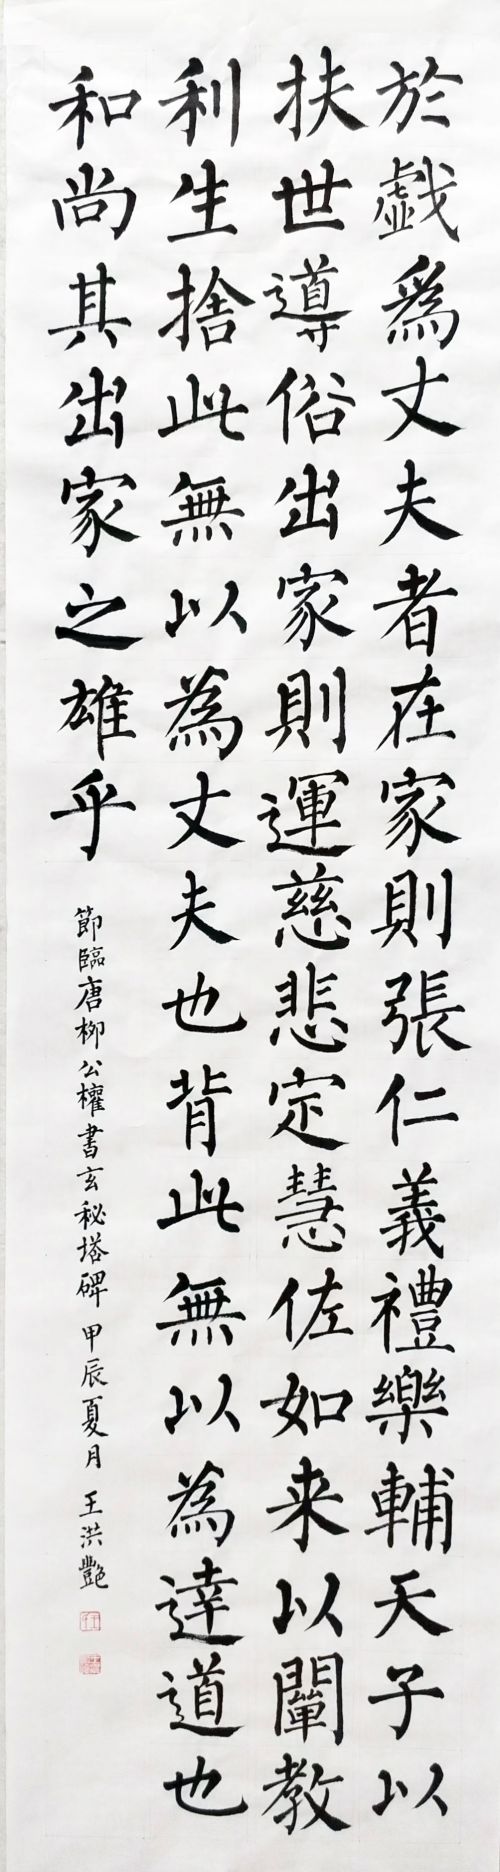 於戲爲丈夫者在家則張仁義禮樂輔天子以
扶世導俗出家則運慈悲定慧佐如来以闡教
利生捨此無以為丈夫也背此無以為達道也
和尚其出家之雄乎
節臨唐柳公權書玄秘塔碑 甲辰夏月 王洪艷